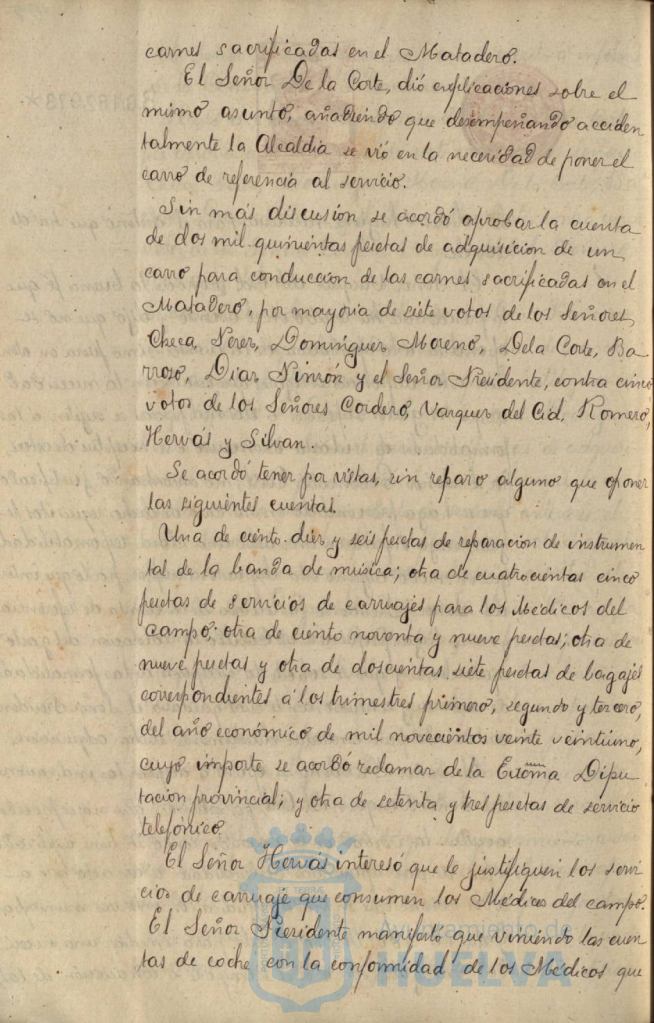 carnes sacrificadas en el Matadero.
El Señor De la Corte, dió explicaciones sobre el
mismo asunto, añadiendo que desempeñando acciden
talmente la Alcaldia se vió en la necesidad de poner el
carro de referencia al servicio.
Sin más discusion se acordó aprobar la cuenta
de dos mil quinientas pesetas de adquisicion de un
carro para conduccion de las carnes sacrificadas en el
Matadero, por mayoria de siete votos de los Señores
Checa, Perez, Dominguez Moreno, De la Corte, Ba
rroso, Diaz Pinzón y el Señor Presidente, contra cinco
votos de los Señores Cordero, Vazquez del Cid, Romero,
Hervás y Silvan.
Se acordó tener por vistas, sin reparo alguno que oponer
las siguientes cuentas.
Una de ciento diez y seis pesetas de reparacion de instrumen
tal de la banda de musica; otra de cuatrocientas cinco
pesetas de servicios de carruajes para los Médicos del
campo; otra de ciento noventa y nueve pesetas; otra de
nueve pesetas y otra de doscientas siete pesetas de bagajes
correspondientes á los trimestres primero, segundo y tercero,
del año económico de mil novecientos veinte veintiuno,
cuyo importe se acordó reclamar de la Excma Dipu
tacion provincial; y otra de setenta y tres pesetas de servicio
telefónico.
El Señor Hervás interesó que se justifiquen los servi
cios de carruaje que consumen los Médicos del campo.
El Señor Presidente manifestó que viniendo las cuen
tas de coche con la conformidad de los Médicos que
Ayuntamiento de
HUELVA